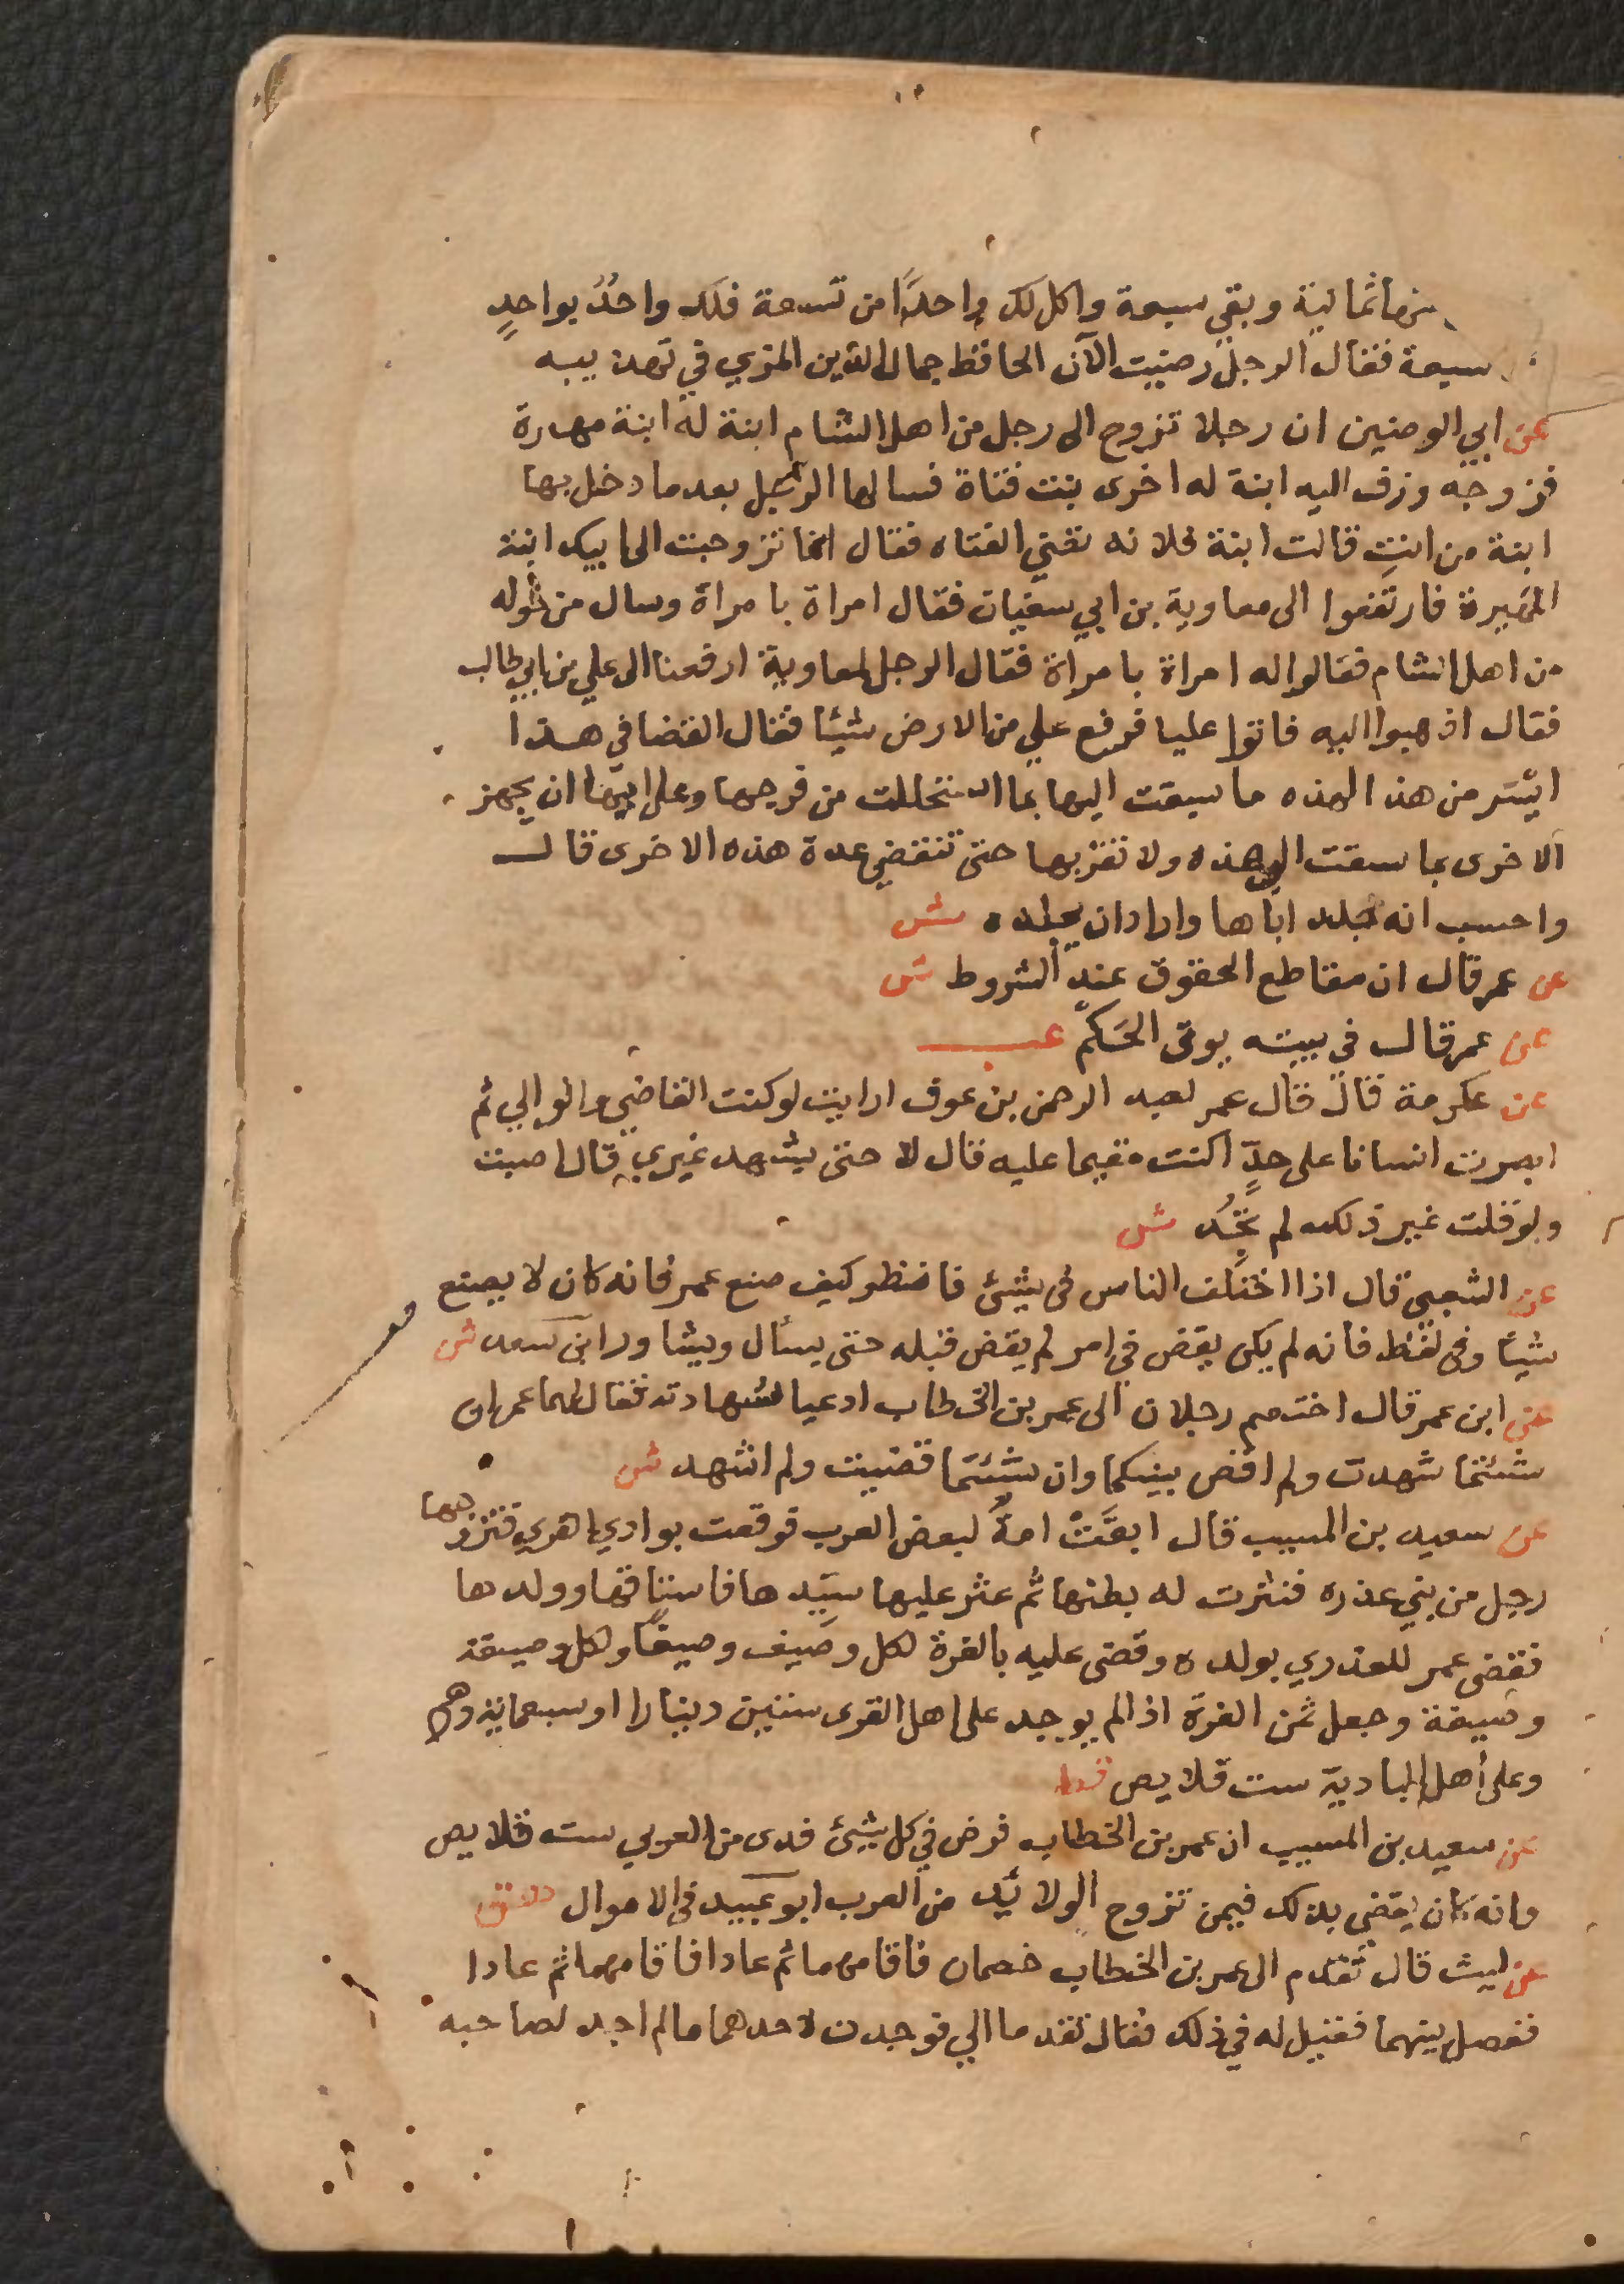 منها ثمانية وبقي سبعة واكل لك واحدًا من تسعة فلك واحدٌ بواحدٍ
سبعة فقال الرجل رضيت الآن الحافظ جمال الدين المزي في تهذيبه
عن ابي الوضين ان رجلا تزوج الى رجل من اهل الشام ابنة له ابنة مهيرة
فزوجه وزف اليه ابنة له اخرى بنت فتاة فسالها الرجل بعد ما دخل بها
ابنة من انتِ قالت ابنة فلانه تعني الفتاه فقال انما تزوجت الى ابيك ابنة
المهيرة فارتفعوا الى معاوية بن ابي سفيان فقال امراة بامراة وسال من حوله
من اهل الشام فقالوا له امراة بامراة فقال الرجل لمعاوية ارفعنا الى علي بن ابي طالب
فقال اذهبوا اليه فاتوا عليا فرفع علي من الارض شيئا فقال القضا في هذا
ايسر من هذا لهذه ما سيقت اليها بما استحللت من فرجها وعلى ابيها ان يجهز
الاخرى بما سقت الى هذه ولا تقربها حتى تنقضي عدة هذه الاخرى قال
واحسب انه جلد اباها واراد ان يجلده ش
عن عمر قال ان مقاطع الحقوق عند الشروط ش
عن عمر قال في بيته يوتى الحَكم عب
عن عكرمة قال قال عمر لعبد الرحمن بن عوف ارايت لو كنت القاضي والوالي ثم
ابصرت انسانا على حدٍّ اكنت مقيما عليه قال لا حتى يشهد غيري قال اصبت
ولو قلت غير ذلك لم تجُد ش
عن الشعبي قال اذا اختلف الناس في شيئ فانظر كيف صنع عمر فانه كان لا يصنع
شيئا وفي لفظ فانه لم يكن يقض في امر لم يقض قبله حتى يسأل ويشاور ابن سعد ش
عن ابن عمر قال اختصم رجلان الى عمر بن الخطاب ادعيا شهادته فقال لهما عمر ان
شئتما شهدت ولم اقض بينكما وان شئتما قضيت ولم اشهد ش
عن سعيد بن المسيب قال ابقَتْ امةٌ لبعض العرب فوقعت بوادي القرى فتزوجها
رجل من بني عذره فنثرت له بطنها ثم عثر عليها سيّدها فاستاقها وولدها
فقضى عمر للعذري بولده وقضى عليه بالغرة لكل وصيف وصيفًا ولكل وصيفة
وصيفة وجعل ثمن الغرة اذا لم يوجد على اهل القرى ستين دينارا او سبعماية درهم
وعلى أهل البادية ست قلايص قط
عن سعيد بن المسيب ان عمر بن الخطاب فرض في كل شيئ فدى من العربي ست قلايص
وانه كان يقضي بذلك فيمن تزوج الولائد من العرب ابو عبيد في الاموال ق
عن ليث قال تقدم الى عمر بن الخطاب خصمان فاقامهما ثم عادا فاقامهما ثم عادا
ففصل بينهما فقيل له في ذلك فقال تقدما الي فوجدت لاحدهما ما لم اجد لصاحبه